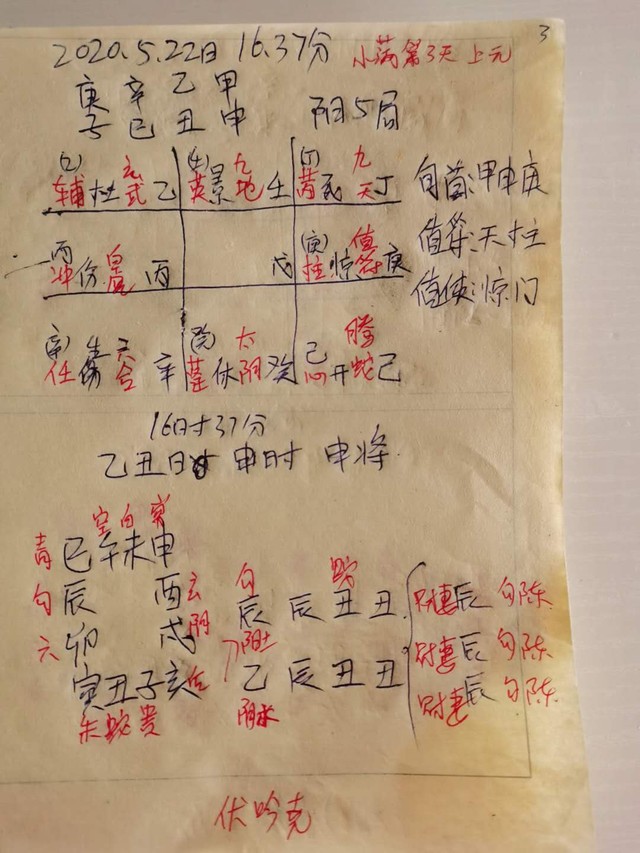 3
2020.5.22日 16.37分 小满第3天上元
庚 辛 乙 甲
子 巳 丑 申 阳5局
(乙) 玄
辅 杜 武 乙
(壬) 九
英 景 地 壬
(丁) 九
芮 死 天 丁
旬首:甲申庚
丙 白
冲 伤 虎 丙
戊
(庚) 值
柱 惊 符 庚
值符:天柱
值使:惊门
(辛) 生 六
任 合 辛
(癸) 太
蓬 休 阴 癸
己 腾
心 开 蛇 己
16时37分
乙丑日 申时 申将
空 白
青 巳 午 未 申
勾 辰 酉 玄
六 卯 戌 阴
寅 丑 子 亥 后
朱 蛇 贵
勾 蛇
辰 辰 丑 丑
阳土
乙 辰 丑 丑
阴木
财妻辰 勾陈
财妻辰 勾陈
财妻辰 勾陈
伏吟克